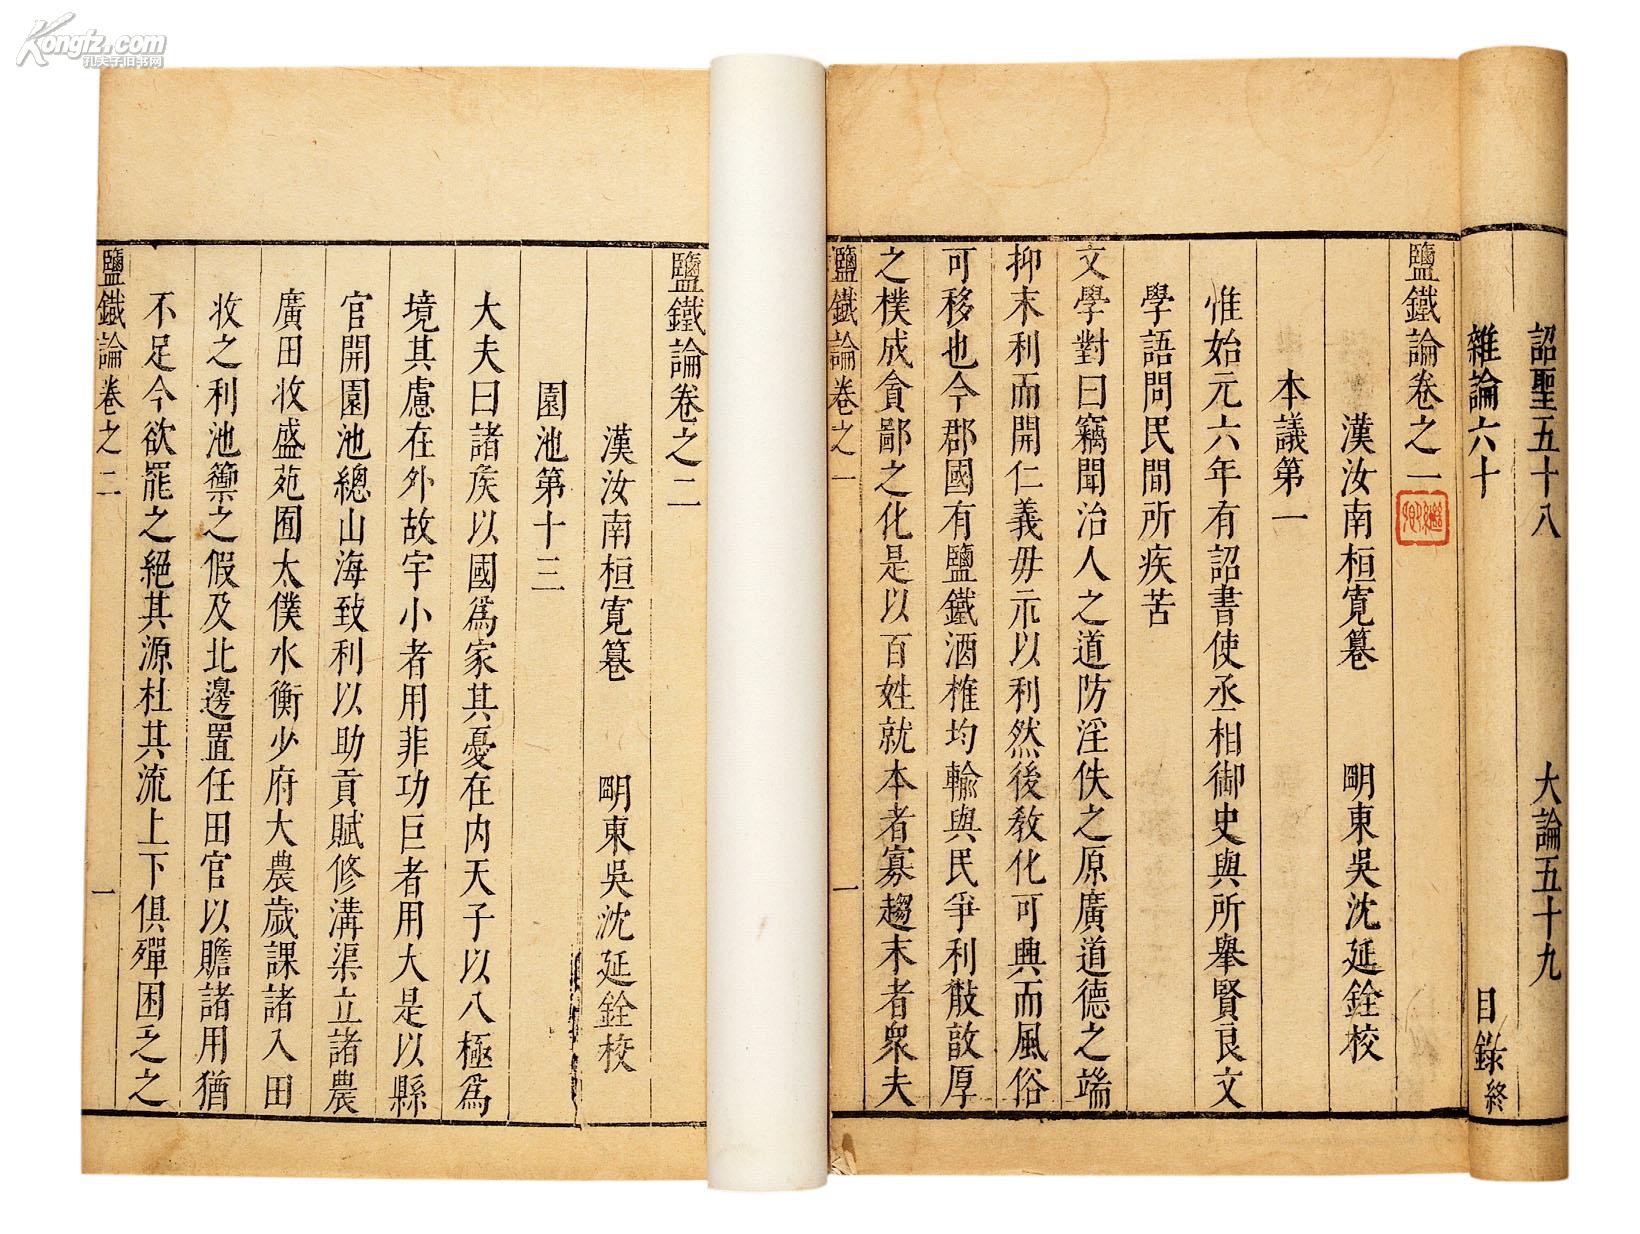 Kongfz.com
孔夫子旧书网
詔聖五十八 大論五十九
雜論六十 目錄終
鹽鐵論卷之一
漢汝南桓寬纂 明東吳沈延銓校
本議第一
惟始元六年有詔書使丞相御史與所舉賢良文
學語問民間所疾苦
文學對曰竊聞治人之道防淫佚之原廣道德之端
抑末利而開仁義毋示以利然後教化可興而風俗
可移也今郡國有鹽鐵酒榷均輸與民爭利散敦厚
之樸成貪鄙之化是以百姓就本者寡趨末者衆夫
鹽鐵論卷之一 一
鹽鐵論卷之二
漢汝南桓寬纂 明東吳沈延銓校
園池第十三
大夫曰諸矦以國爲家其憂在内天子以八極爲
境其慮在外故宇小者用菲功巨者用大是以縣
官開園池總山海致利以助貢賦修溝渠立諸農
廣田收盛苑囿太僕水衡少府大農歲課諸入田
收之利池籞之假及北邊置任田官以贍諸用猶
不足今欲罷之絕其源杜其流上下俱殫困乏之
鹽鐵論卷之二 一